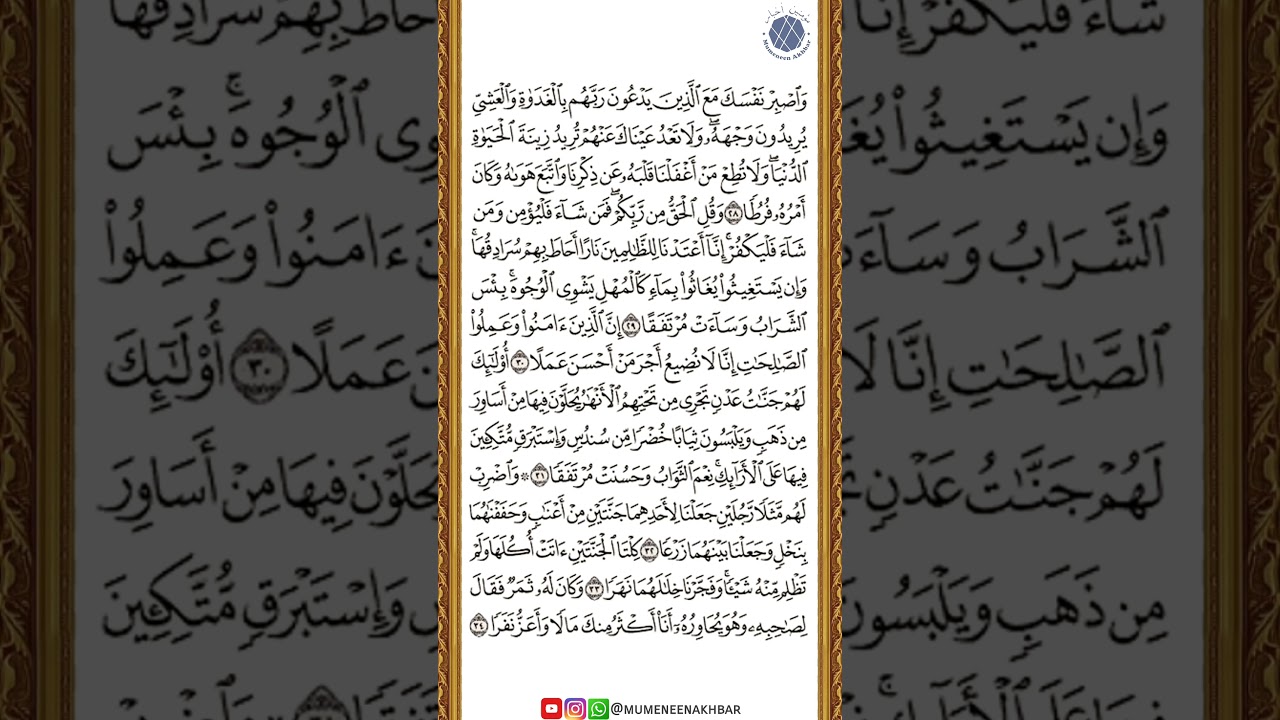 مؤمنين أخبار
Mumeneen Akhbar
وَٱصۡبِرۡ نَفۡسَكَ مَعَ ٱلَّذِينَ يَدۡعُونَ رَبَّهُم بِٱلۡغَدَوٰةِ وَٱلۡعَشِيِّ
يُرِيدُونَ وَجۡهَهُۥۖ وَلَا تَعۡدُ عَيۡنَاكَ عَنۡهُمۡ تُرِيدُ زِينَةَ ٱلۡحَيَوٰةِ
ٱلدُّنۡيَاۖ وَلَا تُطِعۡ مَنۡ أَغۡفَلۡنَا قَلۡبَهُۥ عَن ذِكۡرِنَا وَٱتَّبَعَ هَوَىٰهُ وَكَانَ
أَمۡرُهُۥ فُرُطٗا ٢٨ وَقُلِ ٱلۡحَقُّ مِن رَّبِّكُمۡۖ فَمَن شَآءَ فَلۡيُؤۡمِن وَمَن
شَآءَ فَلۡيَكۡفُرۡۚ إِنَّآ أَعۡتَدۡنَا لِلظَّٰلِمِينَ نَارًا أَحَاطَ بِهِمۡ سُرَادِقُهَاۚ
وَإِن يَسۡتَغِيثُواْ يُغَاثُواْ بِمَآءٖ كَٱلۡمُهۡلِ يَشۡوِي ٱلۡوُجُوهَۚ بِئۡسَ
ٱلشَّرَابُ وَسَآءَتۡ مُرۡتَفَقًا ٢٩ إِنَّ ٱلَّذِينَ ءَامَنُواْ وَعَمِلُواْ
ٱلصَّٰلِحَٰتِ إِنَّا لَا نُضِيعُ أَجۡرَ مَنۡ أَحۡسَنَ عَمَلًا ٣٠ أُوْلَٰٓئِكَ
لَهُمۡ جَنَّٰتُ عَدۡنٖ تَجۡرِي مِن تَحۡتِهِمُ ٱلۡأَنۡهَٰرُ يُحَلَّوۡنَ فِيهَا مِنۡ أَسَاوِرَ
مِن ذَهَبٖ وَيَلۡبَسُونَ ثِيَابًا خُضۡرٗا مِّن سُندُسٖ وَإِسۡتَبۡرَقٖ مُّتَّكِـِٔينَ
فِيهَا عَلَى ٱلۡأَرَآئِكِۚ نِعۡمَ ٱلثَّوَابُ وَحَسُنَتۡ مُرۡتَفَقٗا ٣١ ۞ وَٱضۡرِبۡ
لَهُم مَّثَلٗا رَّجُلَيۡنِ جَعَلۡنَا لِأَحَدِهِمَا جَنَّتَيۡنِ مِنۡ أَعۡنَٰبٖ وَحَفَفۡنَٰهُمَا
بِنَخۡلٖ وَجَعَلۡنَا بَيۡنَهُمَا زَرۡعٗا ٣٢ كِلۡتَا ٱلۡجَنَّتَيۡنِ ءَاتَتۡ أُكُلَهَا وَلَمۡ
تَظۡلِم مِّنۡهُ شَيۡـٔٗاۚ وَفَجَّرۡنَا خِلَٰلَهُمَا نَهَرٗا ٣٣ وَكَانَ لَهُۥ ثَمَرٞ فَقَالَ
لِصَٰحِبِهِۦ وَهُوَ يُحَاوِرُهُۥٓ أَنَا۠ أَكۡثَرُ مِنكَ مَالٗا وَأَعَزُّ نَفَرٗا ٣٤
@MUMENEENAKHBAR